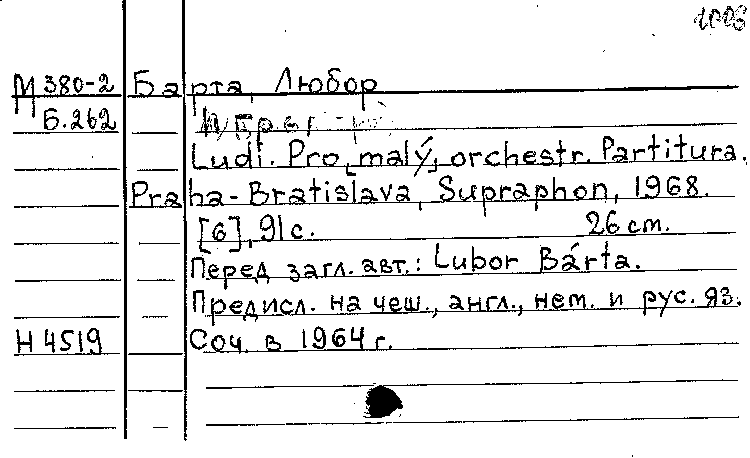 1006
М 380-2 Барта, Любор
Б.262
Ludi. Pro malý orchestr. Partitura.
Praha-Bratislava, Supraphon, 1968.
[6], 91 с. 26 см.
Перед загл. авт.: Lubor Bárta.
Предисл. на чеш., англ., нем. и рус. яз.
Н 4519 Соч. в 1964 г.